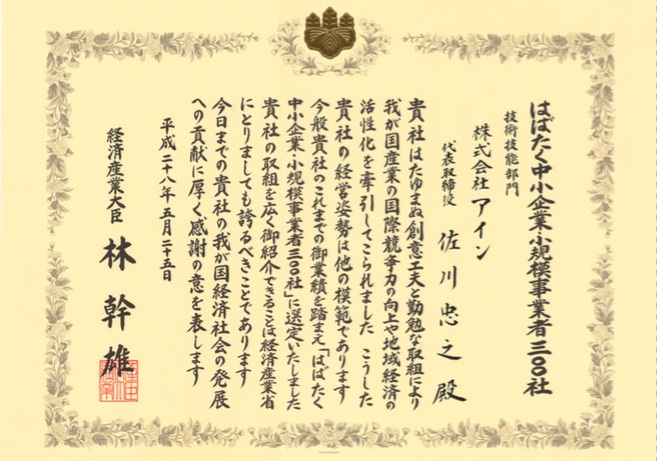 はばたく中小企業・小規模事業者三〇〇社
技術技能部門
株式会社アイン
代表取締役 佐川忠之殿
貴社はたゆまぬ創意工夫と勤勉な取組により
我が国産業の国際競争力の向上や地域経済の
活性化を牽引してこられました こうした
貴社の経営姿勢は他の模範であります
今般貴社のこれまでの御業績を踏まえ「はばたく
中小企業・小規模事業者三〇〇社」に選定いたしました
貴社の取組を広く御紹介できることは経済産業省
にとりましても誇るべきことであります
今日までの貴社の我が国経済社会の発展
への貢献に厚く感謝の意を表します
平成二十八年五月二十五日
経済産業大臣 林幹雄